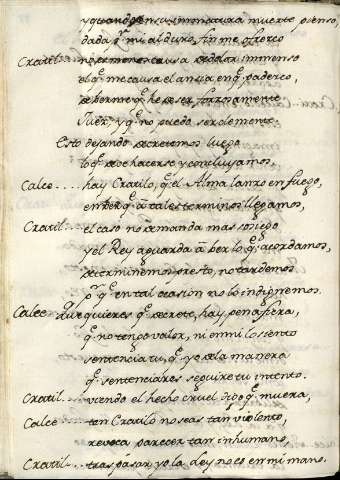 y quando en su inmatura muerte pienso,
dada q̃ mi al duro, fin me ofrezco
Cratil... no es menor causa dolor immenso
el q̃ me causa el ansia en q̃ padezco,
q̃ he de ser forzosamente
Juez, y q̃ no puedo ser clemente.
Esto dejando decretemos luego
lo q̃ se ha de hacer y concluyamos.
Calce.... hay Cratilo, q̃ el Alma lanzo en fuego,
en ver q̃ a tales terminos llegamos,
Cratil... el caso no demanda mas sosiego
y el Rey aguarda a ber lo q̃ acordamos,
determinemos presto, no tardemos
pr q̃ en tal ocasion no lo indignemos.
Calce Que quieres q̃ decrete, hay pena fiera,
q̃ no tengo valor, ni en mi lo siento
sentencia tu, q̃ yo de la manera
q̃ sentenciares seguire tu intento.
Cratil... viendo el hecho cruel digo q̃ muera,
Calce... ten Cratilo no seas tan violento,
revoca parecer tan inhumano,
Cratil... traspasar yo la ley no es en mi mano.